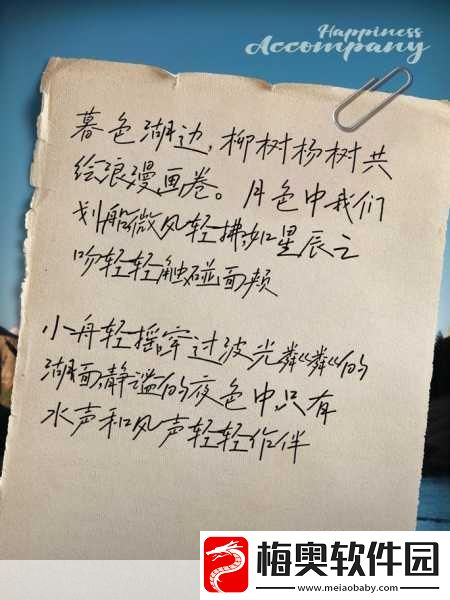 Happiness
Accompany
暮色湖边,柳树杨树共
绘浪漫画卷。月色中我们
划船微风轻拂,如星辰之
吻轻轻触碰面颊
小舟轻摇穿过波光粼粼的
湖面,静谧的夜色中只有
水声和风声轻轻作伴
梅奥软件园
www.meiaobaby.com